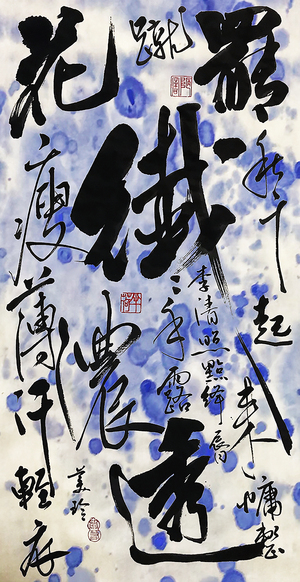 蹴
罷秋千起來慵整
纖〻手露
濃
花瘦薄汗輕衣
透
李清照點絳唇
美玲